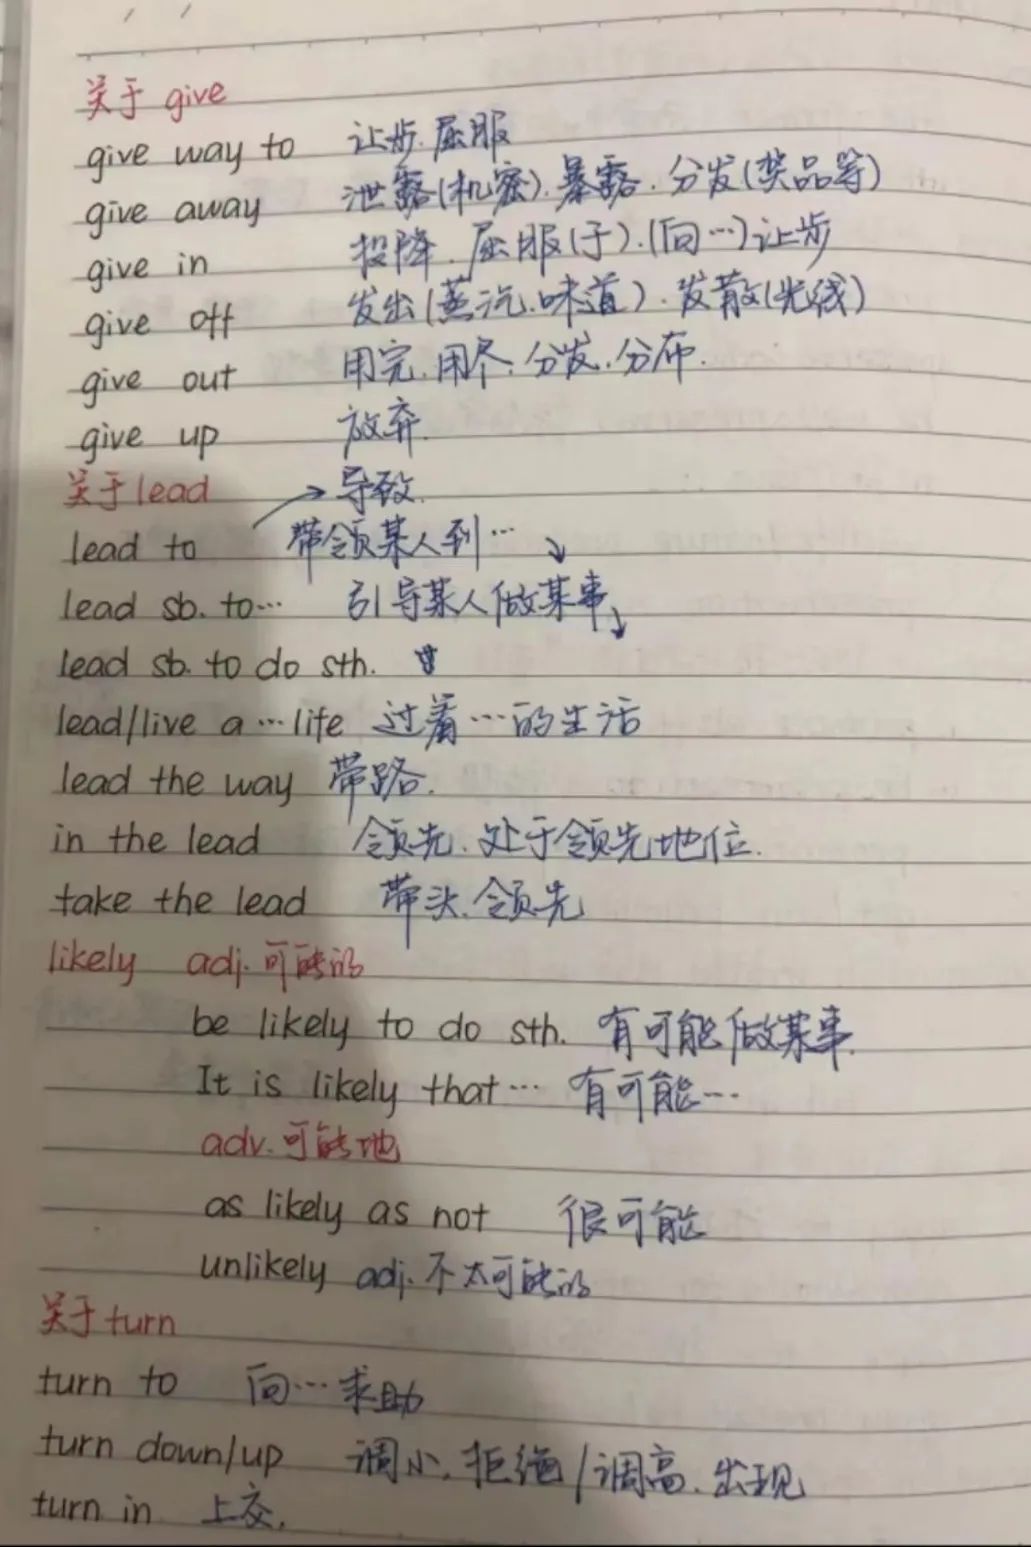 关于 give
give way to 让步.屈服
give away 泄露(机密).暴露.分发(奖品等)
give in 投降.屈服(于).(向…)让步
give off 发出(蒸汽.味道).发散(光线)
give out 用完.用尽.分发.分布.
give up 放弃.
关于 lead → 导致.
lead to 带领某人到…
lead sb. to… 引导某人做某事
lead sb. to do sth.
lead/live a … life 过着…的生活
lead the way 带路.
in the lead 领先.处于领先地位.
take the lead 带头.领先
likely adj.可能的
be likely to do sth. 有可能做某事.
It is likely that… 有可能…
adv.可能地
as likely as not 很可能
unlikely adj.不太可能的
关于 turn
turn to 向…求助
turn down/up 调小.拒绝/调高.出现
turn in 上交.